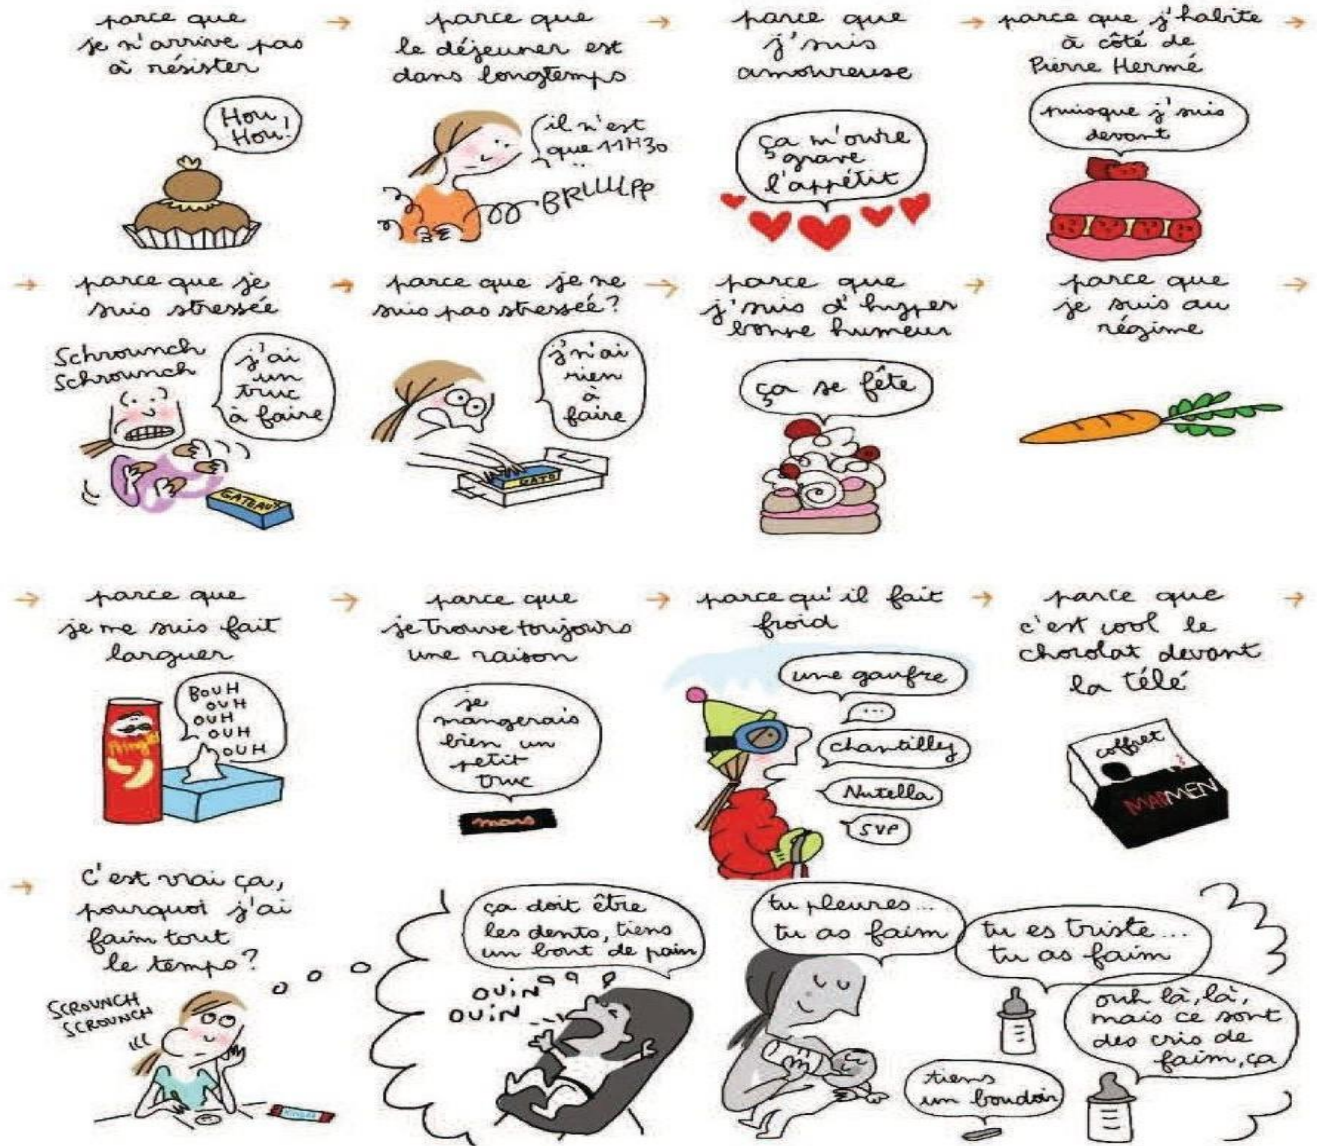 parce que
je n'arrive pas
à résister
Hou
Hou!
parce que
le déjeuner est
dans longtemps
il n'est
que 11H30
...
BRLULPP
parce que
j'suis
amoureuse
ça m'ouvre
grave
l'appétit
parce que j'habite
à côté de
Pierre Hermé
puisque j'suis
devant
parce que je
suis stressée
Schrounch
Schrounch
j'ai
un
truc
à faire
GATEAUX
parce que je ne
suis pas stressée?
j'n'ai
rien
à
faire
GATO
parce que
j'suis d'hyper
bonne humeur
ça se fête
parce que
je suis au
régime
parce que
je me suis fait
larguer
BOUH
OUH
OUH
OUH
OUH
parce que
je trouve toujours
une raison
je
mangerais
bien un
petit
truc
mars
parce qu'il fait
froid
une gaufre
...
chantilly
Nutella
SVP
parce que
c'est cool le
chocolat devant
la télé
coffret
MADMEN
C'est vrai ça,
pourquoi j'ai
faim tout
le temps?
SCROUNCH
SCROUNCH
ça doit être
les dents, tiens
un bout de pain
OUIN
OUIN
tu pleures...
tu as faim
tu es triste...
tu as faim
ouh là, là,
mais ce sont
des cris de
faim, ça
tiens
un boudoir